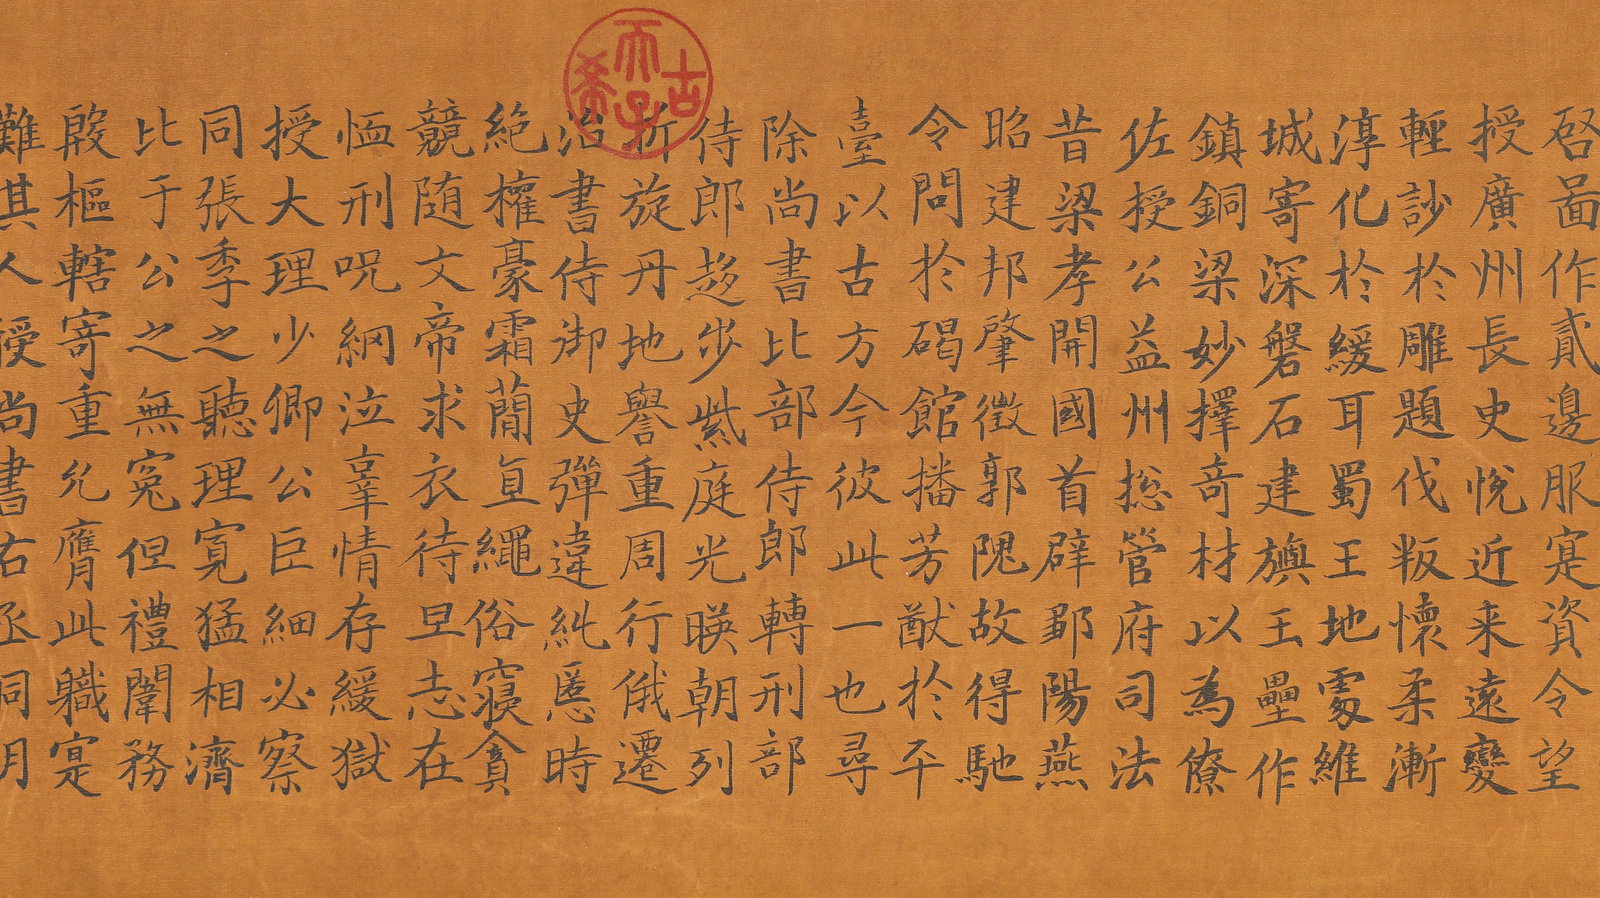 啓啚作貳邊服寔資令望
授廣州長史悅近来遠變
輕訬於雕題伐叛懷柔漸
淳化於緩耳蜀王地處維
城寄深磐石建旟玉壘作
鎮銅梁妙擇奇材以為僚
佐授公益州捴管府司法
昔梁孝開國首辟鄒陽燕
昭建邦肇徵郭隗故得馳
令問於碣館播芳猷於平
臺以古方今彼此一也尋
除尚書比部侍郎轉刑部
侍郎趍步紫庭光暎朝列
折旋丹地譽重周行俄遷
治書侍御史彈違糺慝時
絶權豪霜蕳直繩俗寝貪
競随文帝求衣待旦志在
恤刑呪網泣辜情存緩獄
授大理少卿公巨細必察
同張季之聽理寬猛相濟
比于公之無冤但禮闈務
殷樞轄寄重允膺此職寔
難其人授尚書右丞同月
古希天子